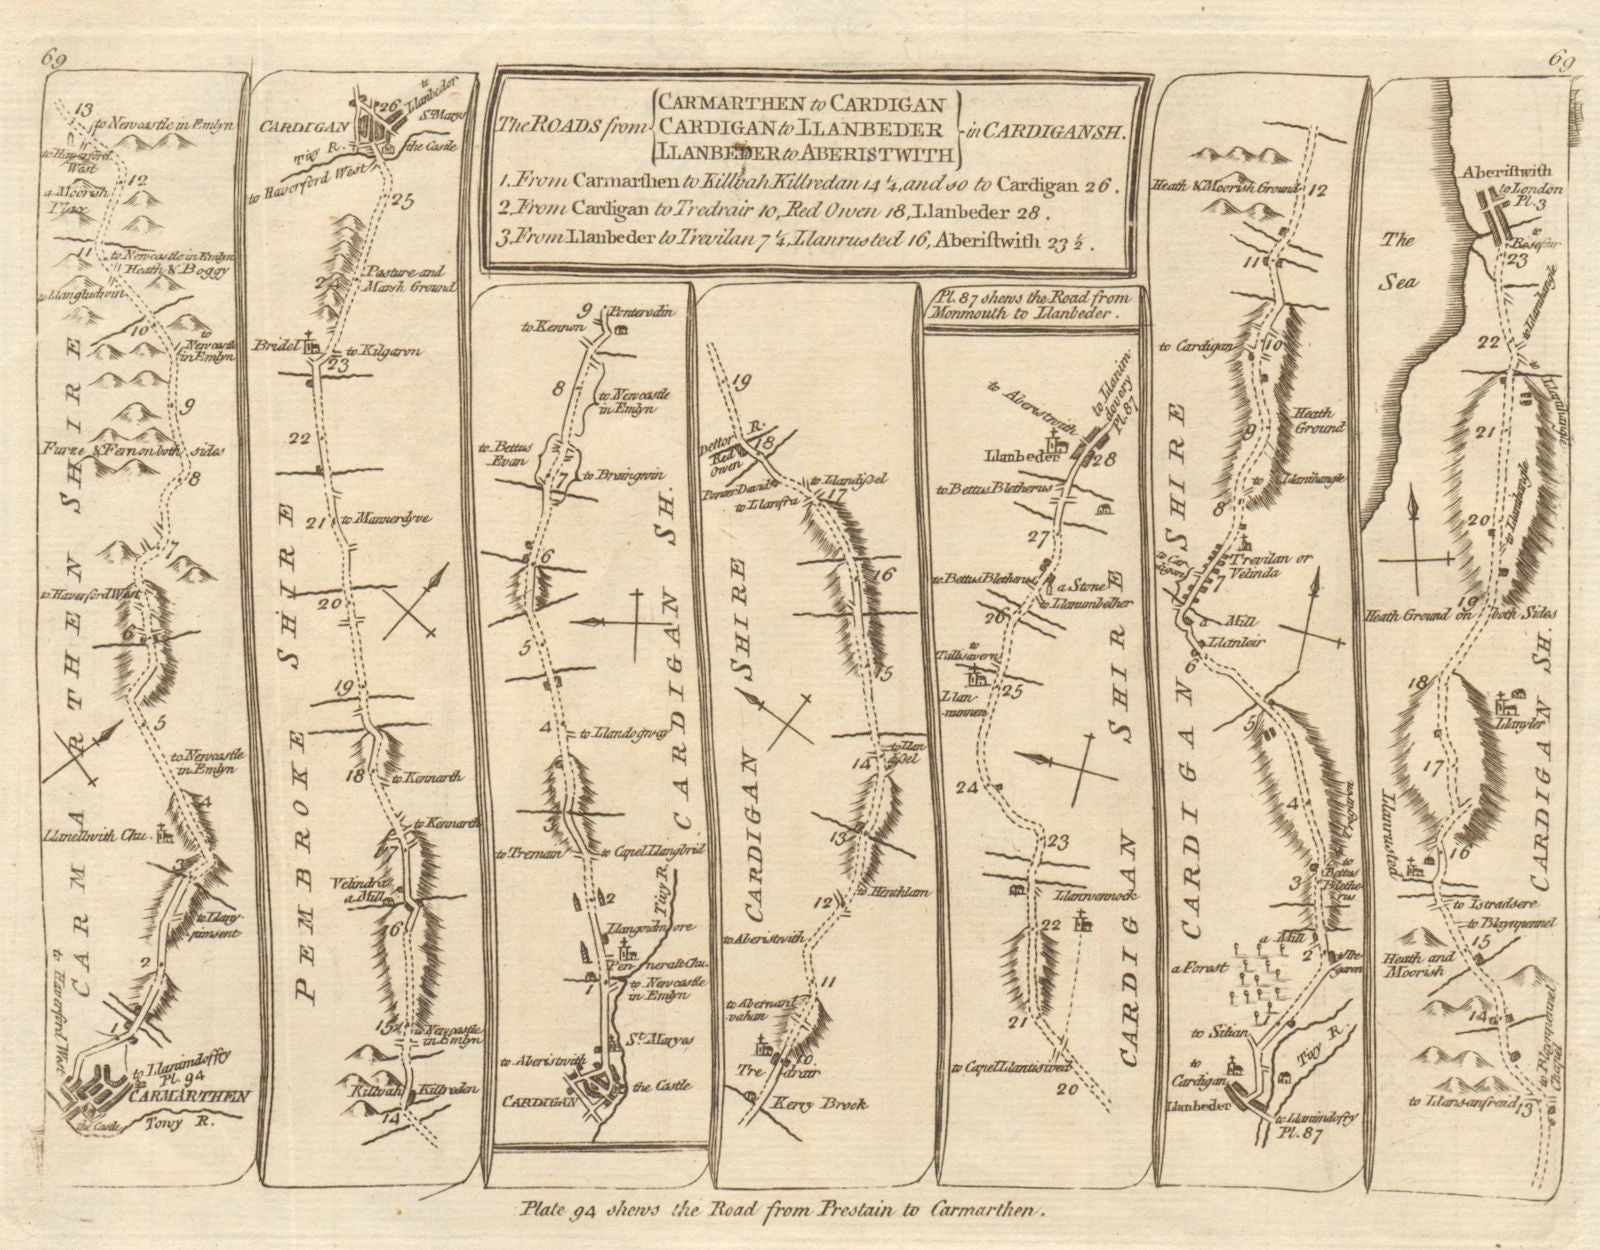 69
69
The ROADS from
CARMARTHEN to CARDIGAN
CARDIGAN to LLANBEDER
LLANBEDER to ABERISTWITH
in CARDIGANSH.
1. From Carmarthen to Killvah Killredan 14 1/4, and so to Cardigan 26.
2. From Cardigan to Tredrair 10, Red Owen 18, Llanbeder 28.
3. From Llanbeder to Trevilan 7 1/4, Llanrusted 16, Aberistwith 23 1/2.
13
to Newcastle in Emlyn
to Haverford
West
12
a Moorish
Flax
11
to Newcastle in Emlyn
Heath & Boggy
to Llangludwin
10
to
Newcastle
in Emlyn
9
Furze & Fern on both sides
8
7
to Haverford West
6
5
to Newcastle
in Emlyn
4
Llanellwith Chu.
3
to Llany
pimsent
2
to Haverford West
1
to Llanimdoffry
Pl. 94
CARMARTHEN
the Castle
Towy R.
CARMARTHEN SHIRE
26
to
Llanbeder
CARDIGAN
St. Marys
the Castle
Tivy R.
to Haverford West
25
24
Pasture and
Marsh Ground
Bridel
to Kilgaron
23
22
21
to Mannerdyve
20
19
18
to Kennarth
to Kennarth
17
Velindra
a Mill
16
15
to Newcastle
in Emlyn
Killvah
Killreden
14
PEMBROKE SHIRE
9
Ponterodin
to Kennon
8
to Newcastle
in Emlyn
to Bettus
Evan
7
to Broingwin
6
5
4
to Llandogway
3
to Tremain
to Capel Llangbrid
2
Tivy R.
Llangoudmore
Penneralt Chu.
1
to Newcastle
in Emlyn
St. Maryes
to Aberistwith
the Castle
CARDIGAN
CARDIGAN SH.
19
Dettor R.
18
Red
Owen
Ponter David
to Llandyssel
17
to Llanfra
16
15
14
to Llan
dyssel
13
12
to Henchlam
to Aberistwith
11
to Abernant
vahan
10
Tredrair
Kerry Brook
CARDIGAN SHIRE
Pl. 87 shews the Road from
Monmouth to Llanbeder.
to Aberistwith
to Llanim
dovery
Pl. 87
Llanbeder
28
to Bettus Bletherus
27
to Bettus Bletherus
a Stone
to Llanumbelher
26
to
Tallisavern
25
Llan-
nunnen
24
23
Llanwennock
22
21
to Capel Llantiswed
20
CARDIGAN SHIRE
Heath & Moorish Ground
12
11
to Cardigan
10
Heath
Ground
9
to Llanihangle
8
Trevilan or
Velinda
to Car-
digan
7
a Mill
Llanleir
6
5
4
to Tregaron
3
to
Bettus
Blethe-
rus
a Mill
2
to Tre-
garon
a Forest
1
to Silian
Tivy R.
to
Cardigan
Llanbeder
to Llanimdoffry
Pl. 87
CARDIGAN SHIRE
The
Sea
Aberistwith
to London
Pl. 3
23
22
to Llanihangle
21
to Llanihangle
20
19
Heath Ground on both Sides
18
Llanyler
17
Llanrusted
16
to Istradsere
to Blaynpennel
15
Heath and
Moorish
14
to Blaynpennel
Chapel
to Llansanfraid
13
CARDIGAN SH.
Plate 94 shews the Road from Prestain to Carmarthen.